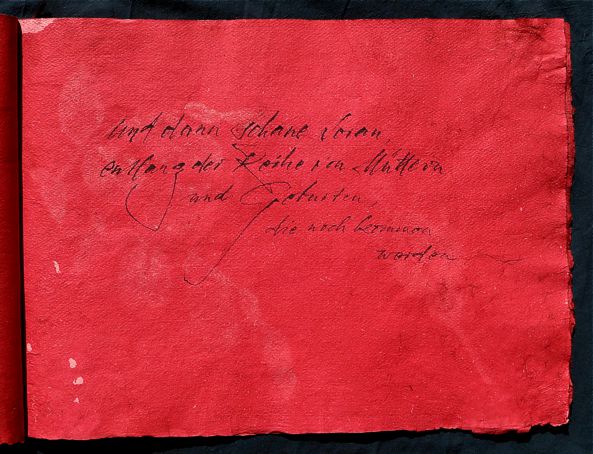 und dann schaue voran
entlang der Reihe von Müttern
und Geburten,
die noch kommen
werden